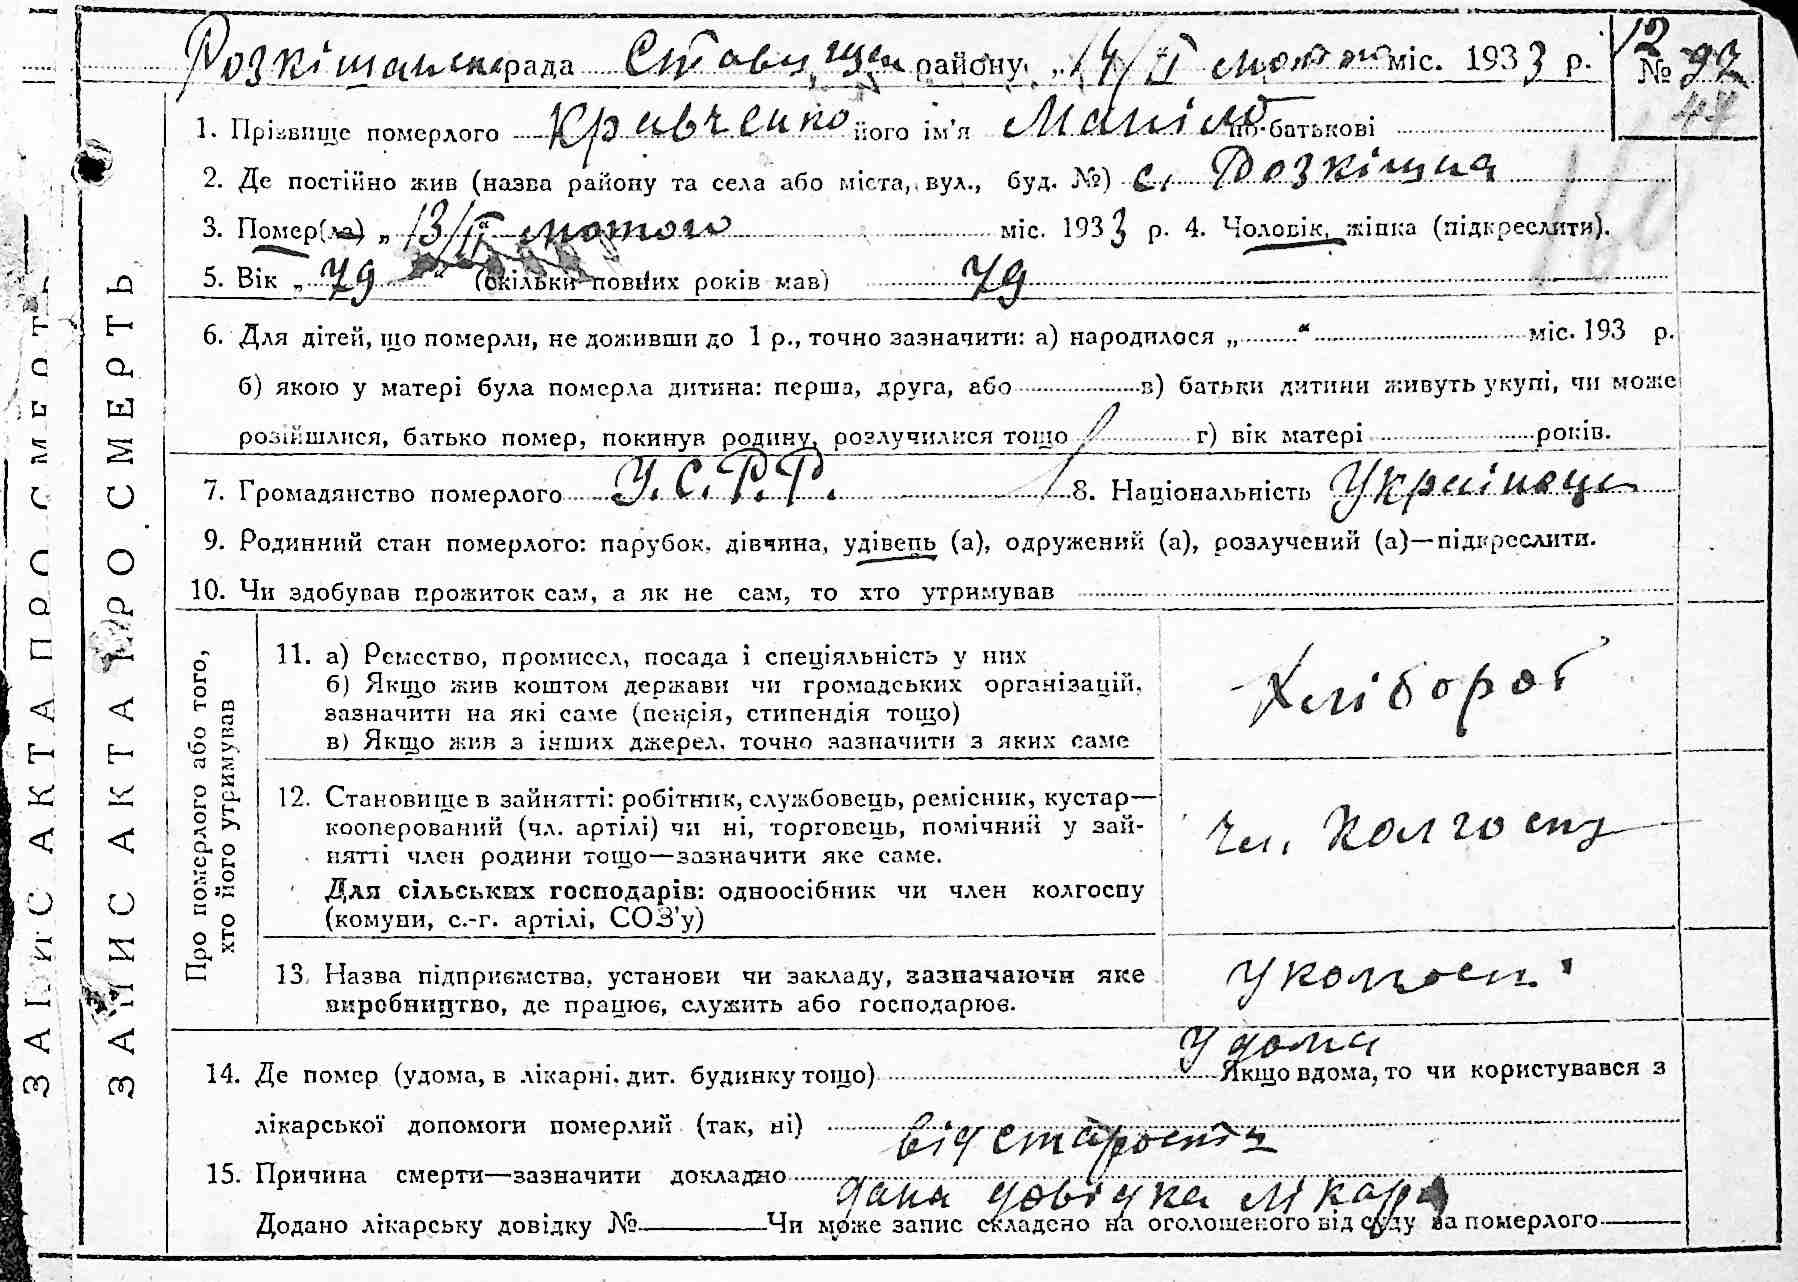 Розкішанська рада Ставищен району „14/ІІ лютого міс. 1933 р. № 92
12
47
1. Прізвище померлого Кравченко його ім'я Маніло по-батькові
2. Де постійно жив (назва району та села або міста, вул., буд. №) с. Розкішна
3. Помер(ла) „ 13/ІІ лютого міс. 1933 р. 4. Чоловік, жінка (підкреслити).
5. Вік „ 79 “ (скільки повних років мав) 79
6. Для дітей, що померли, не доживши до 1 р., точно зазначити: а) народилося „ “ міс. 193 р.
б) якою у матері була померла дитина: перша, друга, або в) батьки дитини живуть укупі, чи може
розійшлися, батько помер, покинув родину, розлучилися тощо г) вік матері років.
7. Громадянство померлого У.С.Р.Р. 8. Національність Українець
9. Родинний стан померлого: парубок, дівчина, удівець (а), одружений (а), розлучений (а)—підкреслити.
10. Чи здобував прожиток сам, а як не сам, то хто утримував
Про померлого або того,
хто його утримував
11. а) Ремество, промисел, посада і спеціяльність у них
б) Якщо жив коштом держави чи громадських організацій,
зазначити на які саме (пенсія, стипендія тощо)
в) Якщо жив з інших джерел, точно зазначити з яких саме
Хлібороб
12. Становище в зайнятті: робітник, службовець, ремісник, кустар—
кооперований (чл. артілі) чи ні, торговець, помічний у зай-
нятті член родини тощо—зазначити яке саме.
Для сільських господарів: одноосібник чи член колгоспу
(комуни, с.-г. артілі, СОЗ'у)
чл. колгоспу
13. Назва підприємства, установи чи закладу, зазначаючи яке
виробництво, де працює, служить або господарює.
У колгосп.
14. Де помер (удома, в лікарні, дит. будинку тощо) У дома Якщо вдома, то чи користувався з
лікарської допомоги померлий (так, ні)
15. Причина смерти—зазначити докладно від старости
дана довідка лікаря
Додано лікарську довідку № Чи може запис складено на оголошеного від суду за померлого
ЗАПИС АКТА ПРО СМЕРТЬ
ЗАПИС АКТА ПРО СМЕРТ